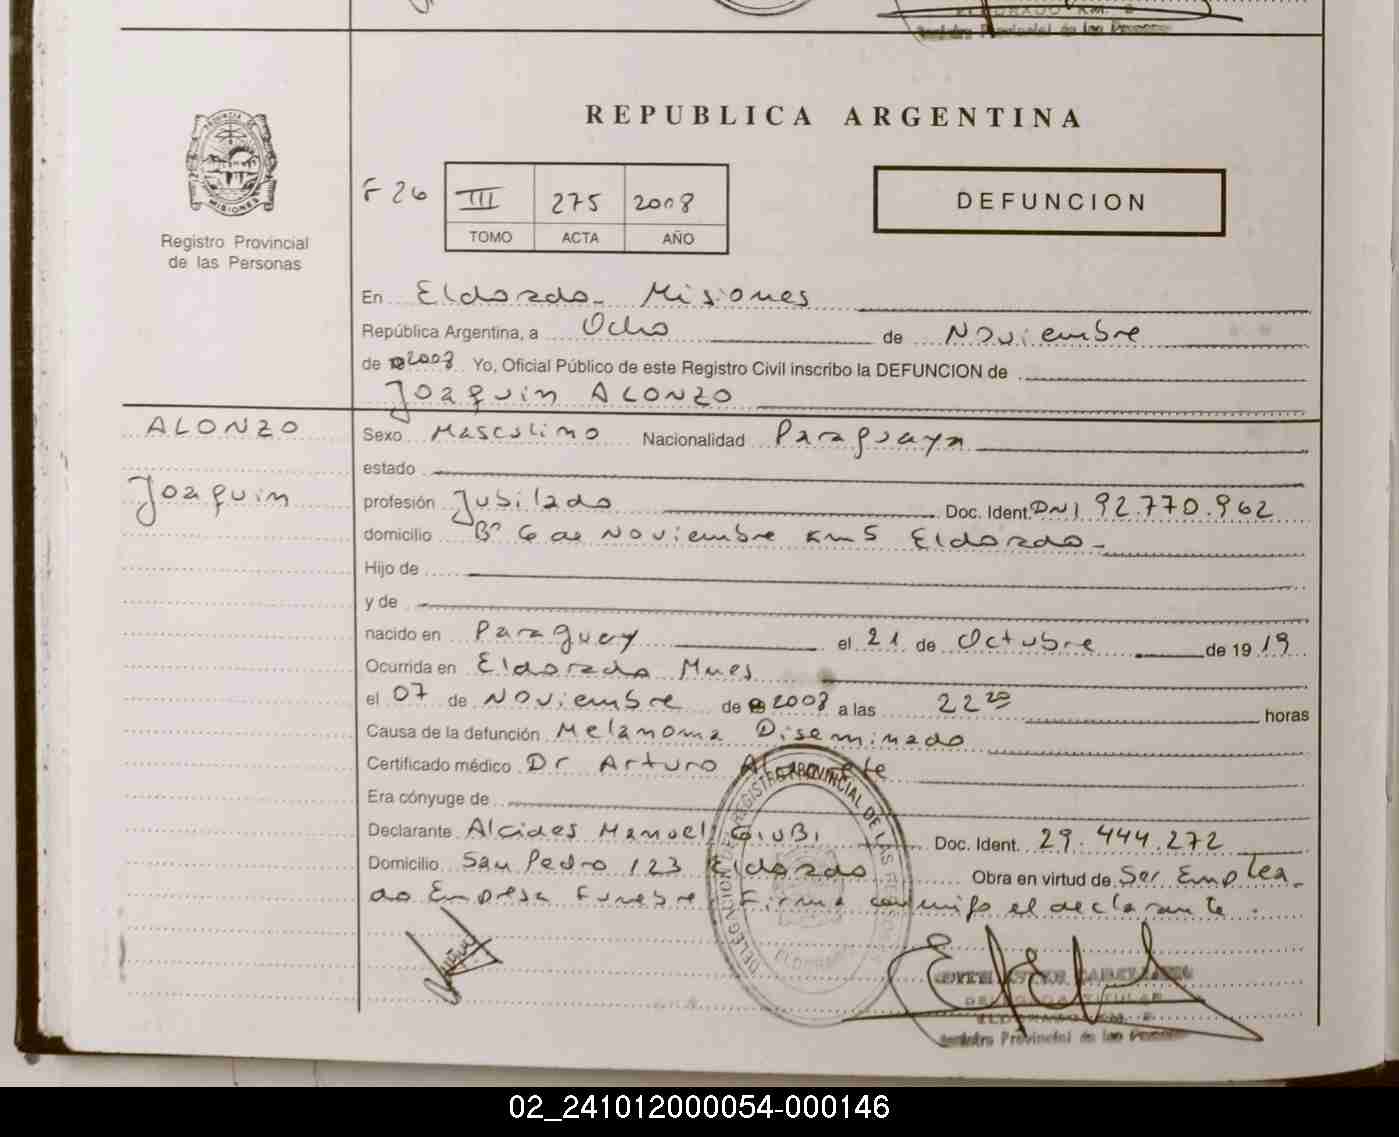 REPUBLICA ARGENTINA
PROVINCIA DE
MISIONES
Registro Provincial
de las Personas
F 26
III 275 2008
TOMO ACTA AÑO
DEFUNCION
En Eldorado - Misiones
República Argentina, a Ocho de Noviembre
de 2008 Yo, Oficial Público de este Registro Civil inscribo la DEFUNCION de
Joaquin ALONZO
ALONZO
Joaquin
Sexo Masculino Nacionalidad Paraguaya
estado
profesión Jubilado Doc. Ident. DNI 92.770.962
domicilio Bº 6 de Noviembre Km 5 Eldorado -
Hijo de
y de
nacido en Paraguay el 21 de Octubre de 1919
Ocurrida en Eldorado Mnes
el 07 de Noviembre de 2008 a las 22 20 horas
Causa de la defunción Melanoma Diseminado
Certificado médico Dr Arturo
Era cónyuge de
Declarante Alcides Manuel GIUBI Doc. Ident. 29.444.272
Domicilio San Pedro 123 Eldorado Obra en virtud de Ser Emplea-
do Empresa Funebre Firma conmigo el declarante.
DELEGADO TITULAR
ELDORADO KM.
Registro Provincial de las Personas
02_241012000054-000146